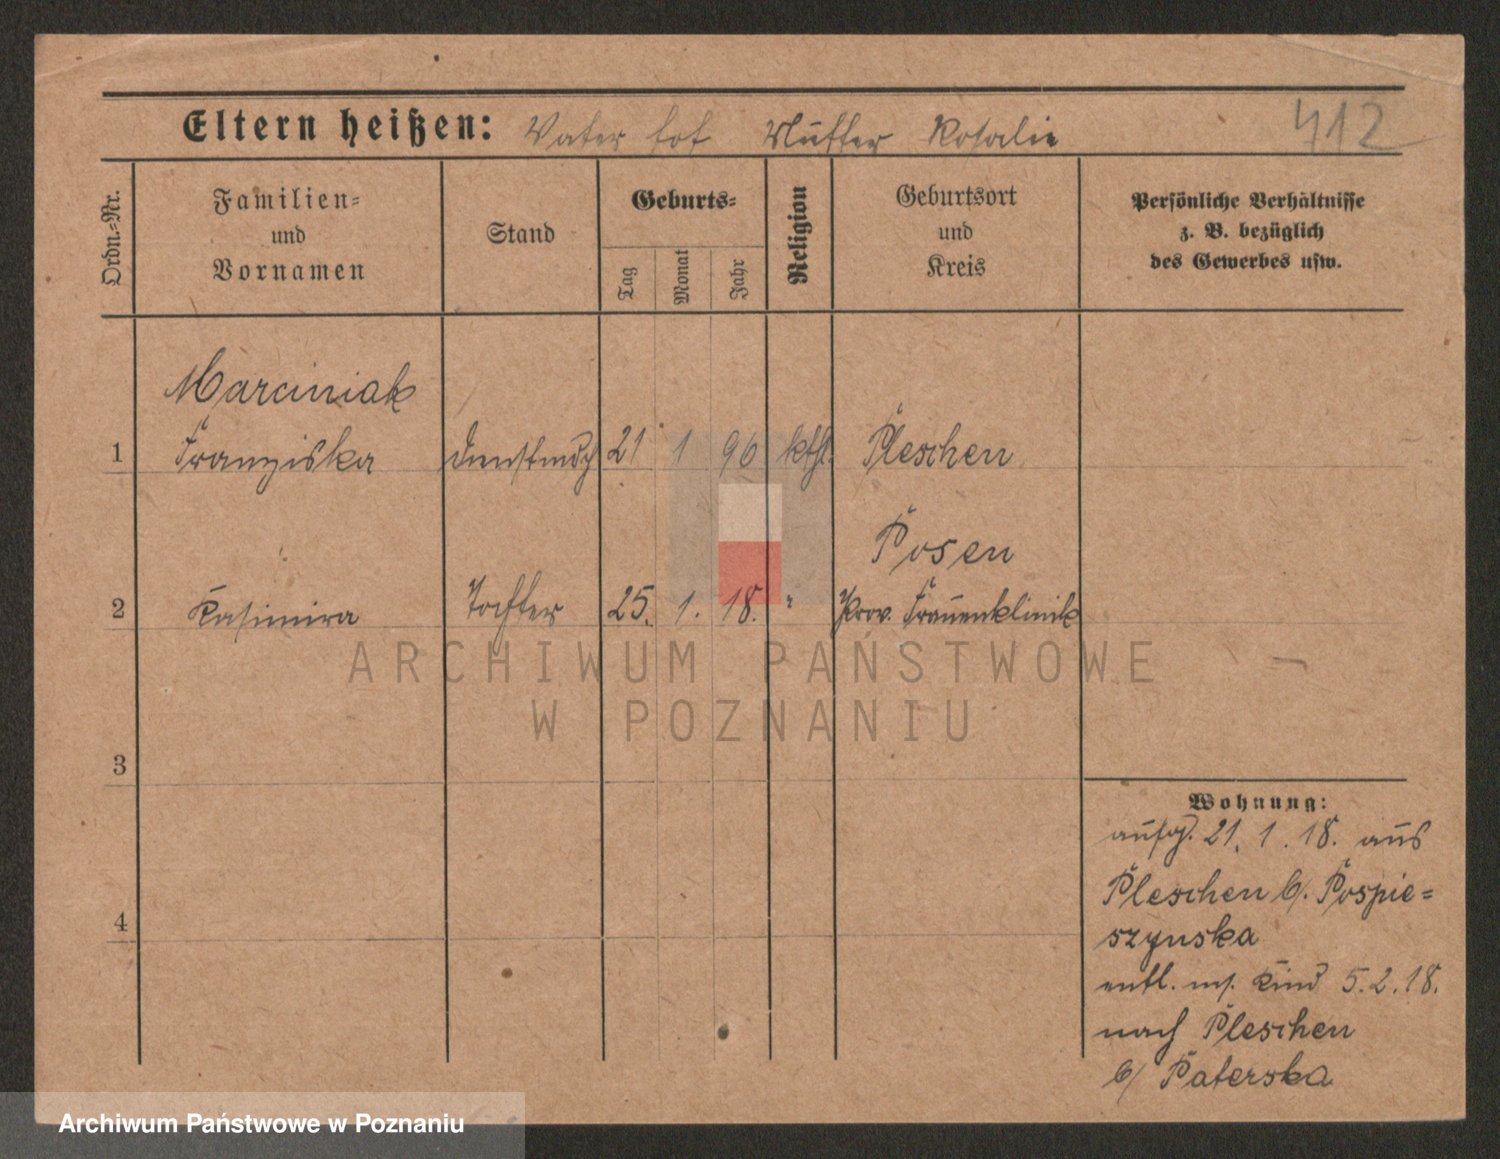 Eltern heißen: Vater tot Mutter Rosalie 412
Ordn.-Nr.
Familien-
und
Vornamen
Stand
Geburts-
Tag
Monat
Jahr
Religion
Geburtsort
und
Kreis
Persönliche Verhältnisse
z. B. bezüglich
des Gewerbes usw.
Marciniak
1 Franziska Dienstmdch 21 1 96 kthl. Pleschen
Posen
2 Kasimira Tochter 25. 1. 18. " Prov. Frauenklinik
ARCHIWUM PAŃSTWOWE
W POZNANIU
3
4
Wohnung:
aufg. 21. 1. 18. aus
Pleschen b/. Pospie=
szynska
entl. m/. Kind 5.2.18.
nach Pleschen
b/ Paterska
Archiwum Państwowe w Poznaniu